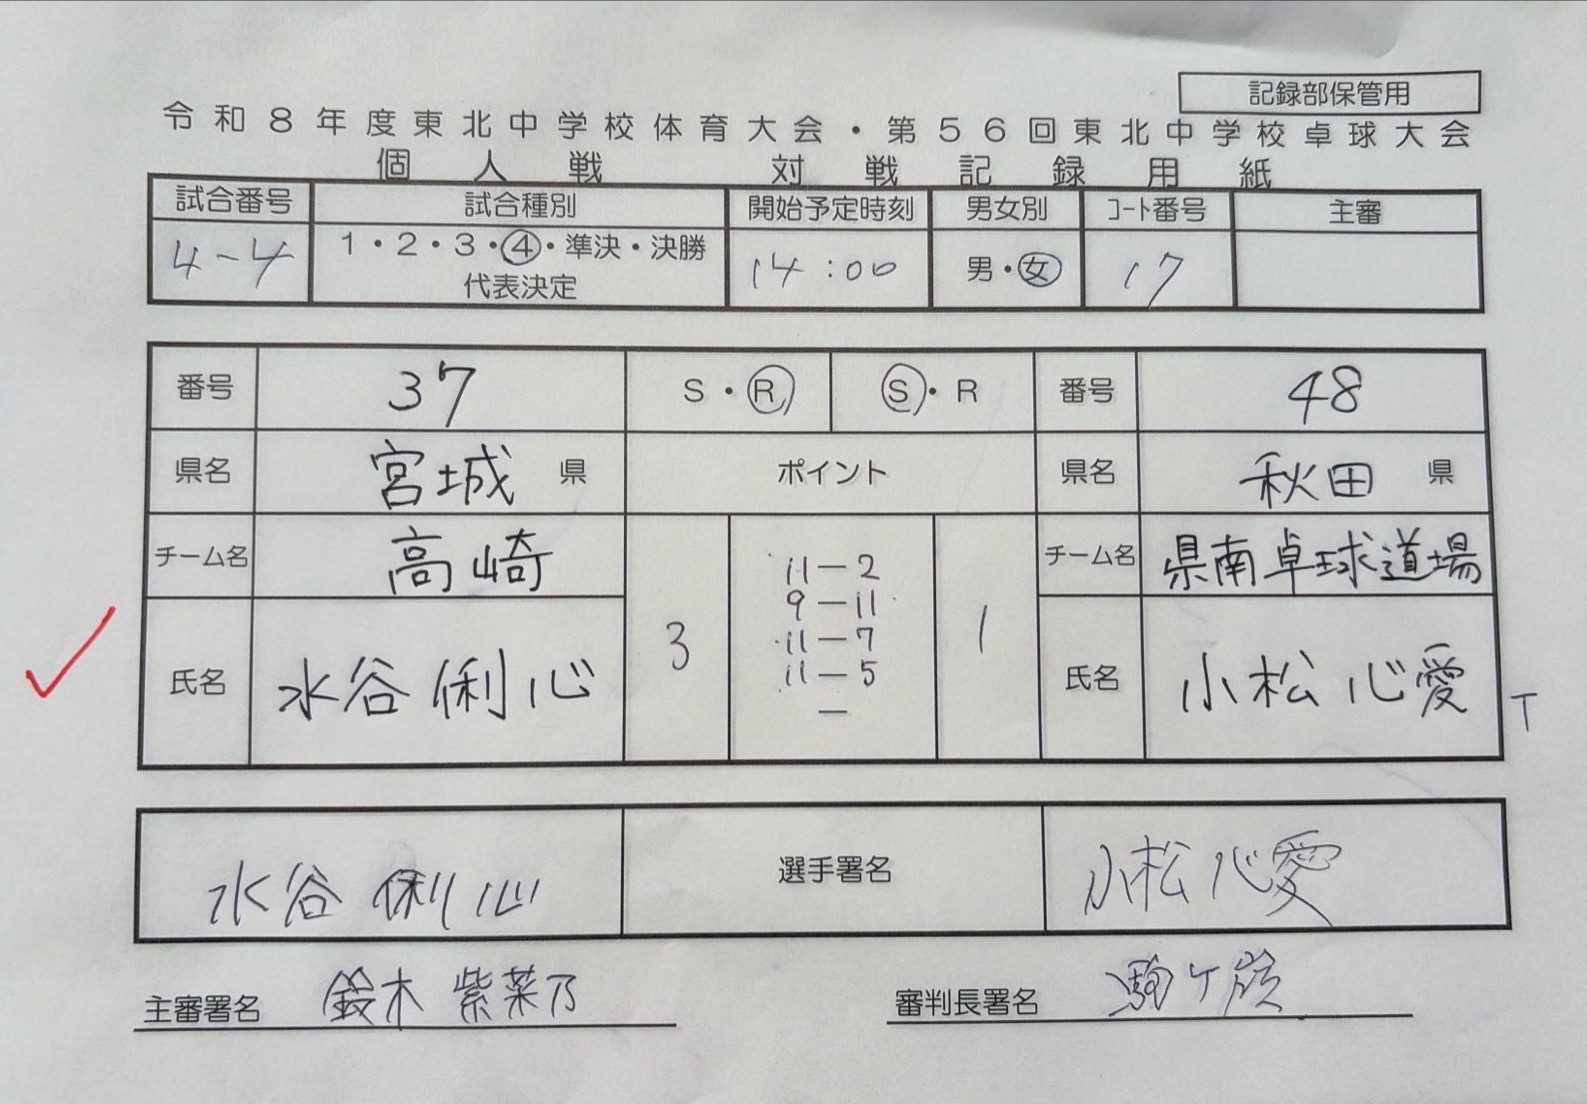 記録部保管用
令和8年度東北中学校体育大会・第56回東北中学校卓球大会
個人戦 対戦記録用紙
試合番号 試合種別 開始予定時刻 男女別 コート番号 主審
4-4 1・2・3・④・準決・決勝 14:00 男・女 17
代表決定
番号 37 S・R S・R 番号 48
県名 宮城 県 ポイント 県名 秋田 県
チーム名 高崎 チーム名 県南卓球道場
11-2
9-11
11-7
11-5
-
3 1
氏名 水谷 俐心 氏名 小松 心愛
T
水谷 俐心 選手署名 小松 心愛
主審署名 鈴木 紫菜乃 審判長署名 駒ケ嶺